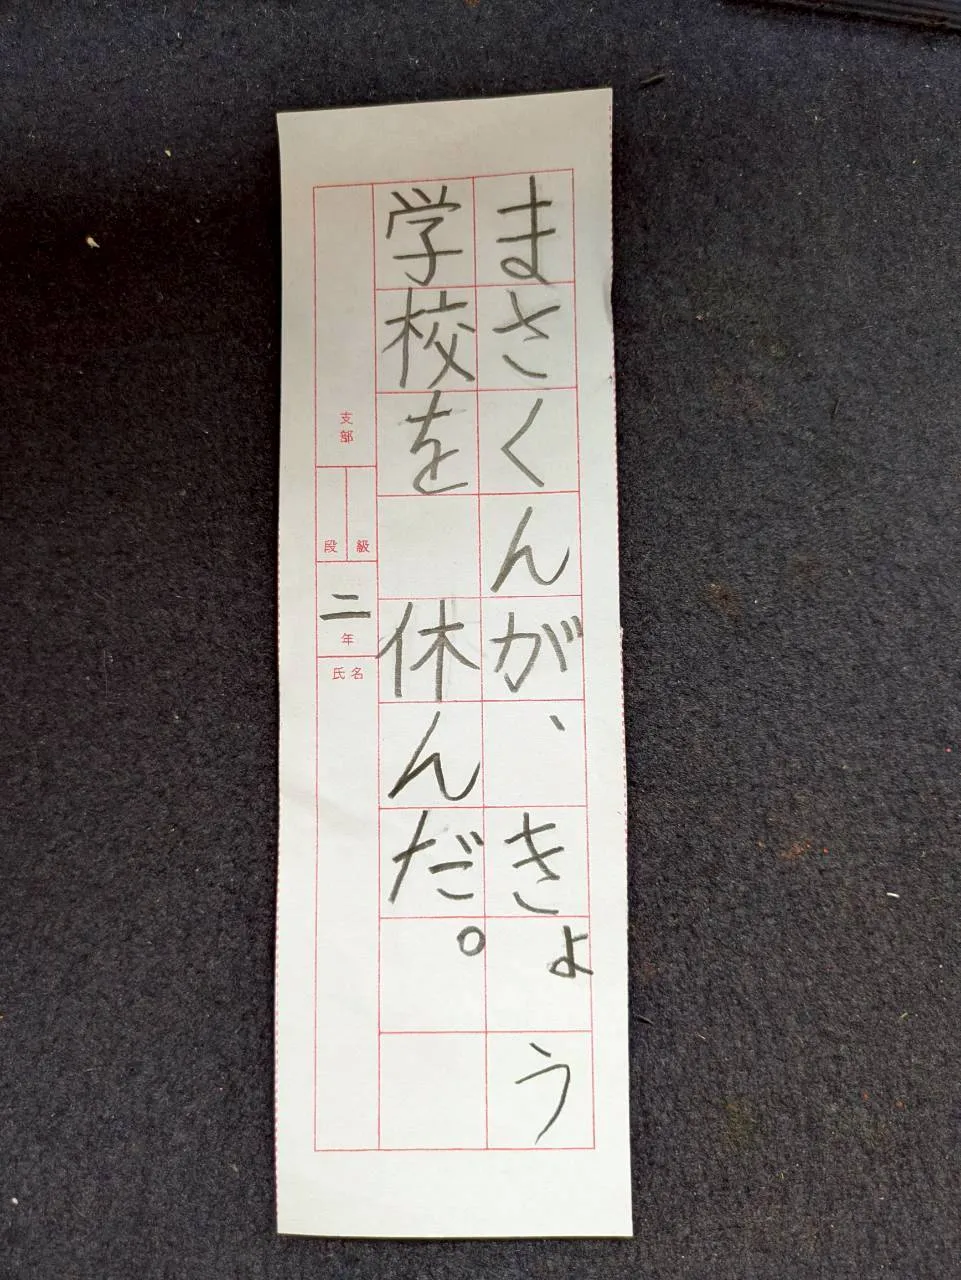 まさくんが、きょう
学校を 休んだ。
支部
段 級
二年
氏名